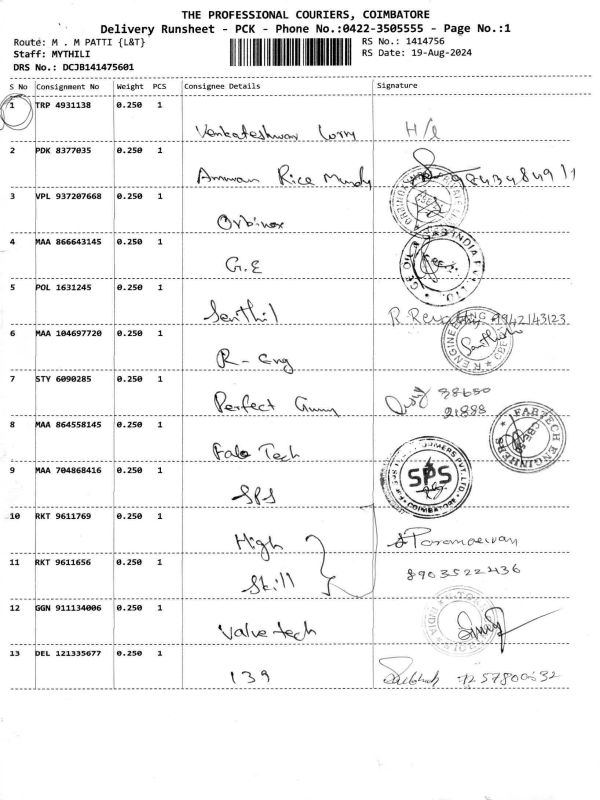 THE PROFESSIONAL COURIERS, COIMBATORE
Delivery Runsheet - PCK - Phone No.:0422-3505555 - Page No.:1
Route: M . M PATTI {L&T}
RS No.: 1414756
Staff: MYTHILI
RS Date: 19-Aug-2024
DRS No.: DCJB141475601
S No Consignment No Weight PCS Consignee Details Signature
1 TRP 4931138 0.250 1
Venkateshwar Lorry H/L
2 PDK 8377035 0.250 1
Rice Mundy
3 VPL 937207668 0.250 1
Orbinox
4 MAA 866643145 0.250 1
G.E
5 POL 1631245 0.250 1
Senthil 9942143123
6 MAA 104697720 0.250 1
R - Eng
7 STY 6090285 0.250 1
Perfect 38650
21888
8 MAA 864558145 0.250 1
Fab Tech
FABTECH ENGINEERS
9 MAA 704868416 0.250 1
SPS
SPS
COIMBATORE
10 RKT 9611769 0.250 1
High
11 RKT 9611656 0.250 1
Skill 8903522436
12 GGN 911134006 0.250 1
Valve tech
13 DEL 121335677 0.250 1
139